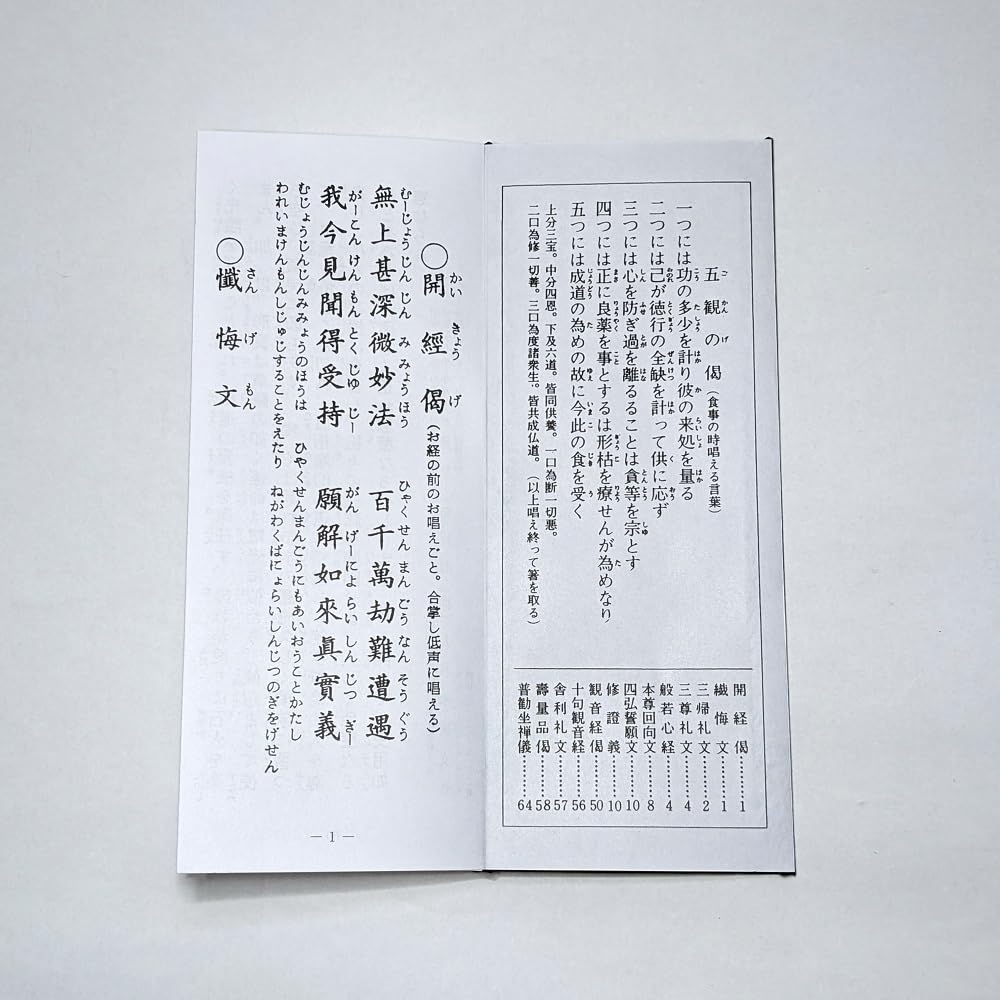 五観の偈(食事の時唱える言葉)
一つには功の多少を計り彼の来処を量る
二つには己が徳行の全缺を計って供に応ず
三つには心を防ぎ過を離るることは貪等を宗とす
四つには正に良薬を事とするは形枯を療せんが為めなり
五つには成道の為めの故に今此の食を受く
上分三宝。中分四恩。下及六道。皆同供養。一口為断一切悪。
二口為修一切善。三口為度諸衆生。皆共成仏道。(以上唱え終って箸を取る)
開経偈………1
懺悔文………1
三帰礼文………2
三尊礼文………4
般若心経………4
本尊回向文………8
四弘誓願文………10
修證義………10
観音経偈………50
十句観音経………56
舎利礼文………57
壽量品偈………58
普勧坐禅儀………64
○開經偈(お経の前のお唱えごと。合掌し低声に唱える)
無上甚深微妙法 百千萬劫難遭遇
我今見聞得受持 願解如來眞實義
むじょうじんじんみみょうのほうは ひやくせんまんごうにもあいおうことかたし
われいまけんもんしじゅじすることをえたり ねがわくばにょらいしんじつのぎをげせん
○懺悔文
— 1 —